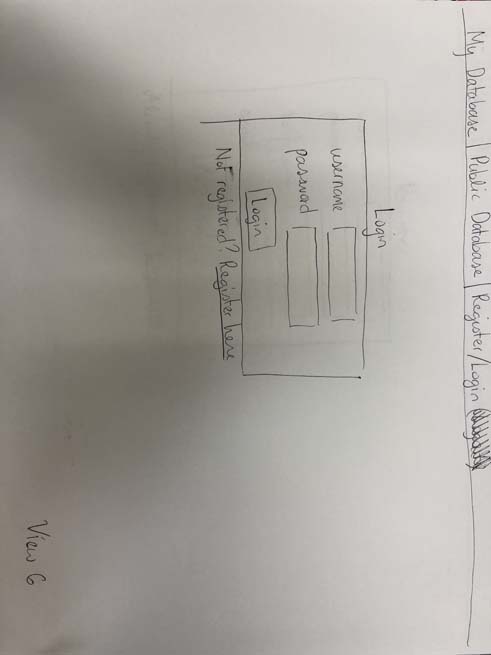 My Database | Public Database | Register/Login
Login
username
password
Login
Not registered? Register here
View 6